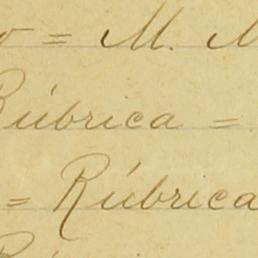 = M. M
Rúbrica =
= Rúbrica